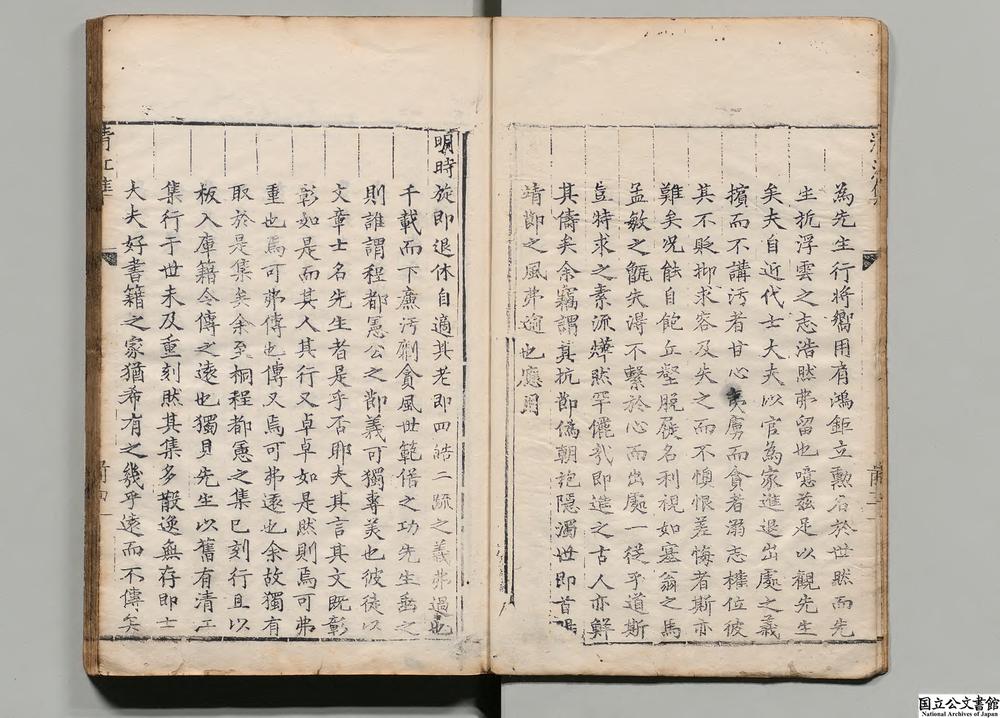 為先生行將嚮用有鴻鉅立勳名於世然而先
生抗浮雲之志浩然弗留也噫茲足以觀先生
矣夫自近代士大夫以官為家進退出處之義
擯而不講汚者甘心夷虜而貪者溺志權位彼
其不貶抑求容及失之而不懊恨差悔者斯亦
難矣況餘自飽丘壑脫屣名利視如塞翁之馬
孟敏之甑失得不繫於心而出處一從乎道斯
豈特求之素流嘆然罕儷我即造之古人亦鮮
其儔矣余竊謂其抗節偽朝詭隱濁世即首陽
靖節之風弗逾也應用
明時旋即退休自適其老即四皓二疏之義弗過也
千載而下廉汚剛貪風世範俗之功先生垂之
則誰謂程都憲公之節義可獨專美也彼徒以
文章士名先生者是乎否耶夫其言其文既彰
彰如是而其人其行又卓卓如是然則焉可弗
重也焉可弗傳也傳又焉可弗遠也余故獨有
取於是集矣余至桐程都憲之集已刻行且以
板入庫籍令傳之遠也獨貝先生以舊有清江
集行于世未及重刻然其集多散逸無存即士
大夫好書籍之家猶希有之幾乎遠而不傳矣
清江集
前四
国立公文書館
National Archives of Japan